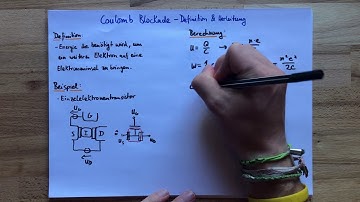 Coulomb Blockade - Definition & Herleitung
Definition:
- Energie die benötigt wird, um
ein weiteres Elektron auf eine
Elektroneninsel zu bringen.
Beispiel:
- Einzelelektronentransistor
U_G
G
S I D
U_D
=
U_G
U_S U_D
Berechnung:
U = Q/C → n·e
W = 1
n²e²/2C